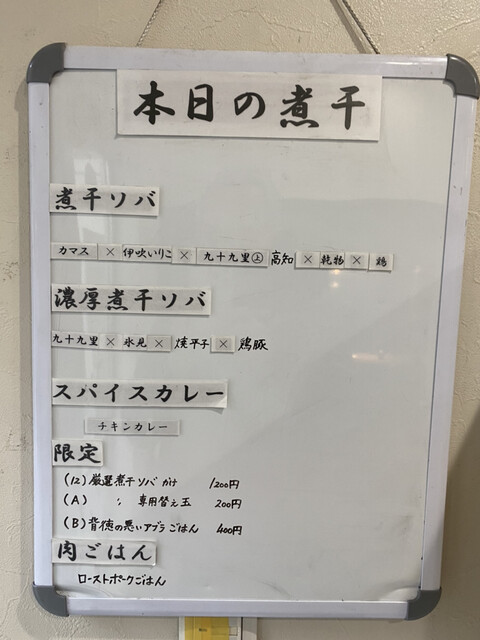 本日の煮干
煮干ソバ
カマス × 伊吹いりこ × 九十九里㊤ 高知 × 乾物 × 鶏
濃厚煮干ソバ
九十九里 × 氷見 × 焼平子 × 鶏豚
スパイスカレー
チキンカレー
限定
(12) 厳選煮干ソバ かけ 1200円
(A) 〃 専用替え玉 200円
(B) 背徳の悪いアブラごはん 400円
肉ごはん
ローストポークごはん